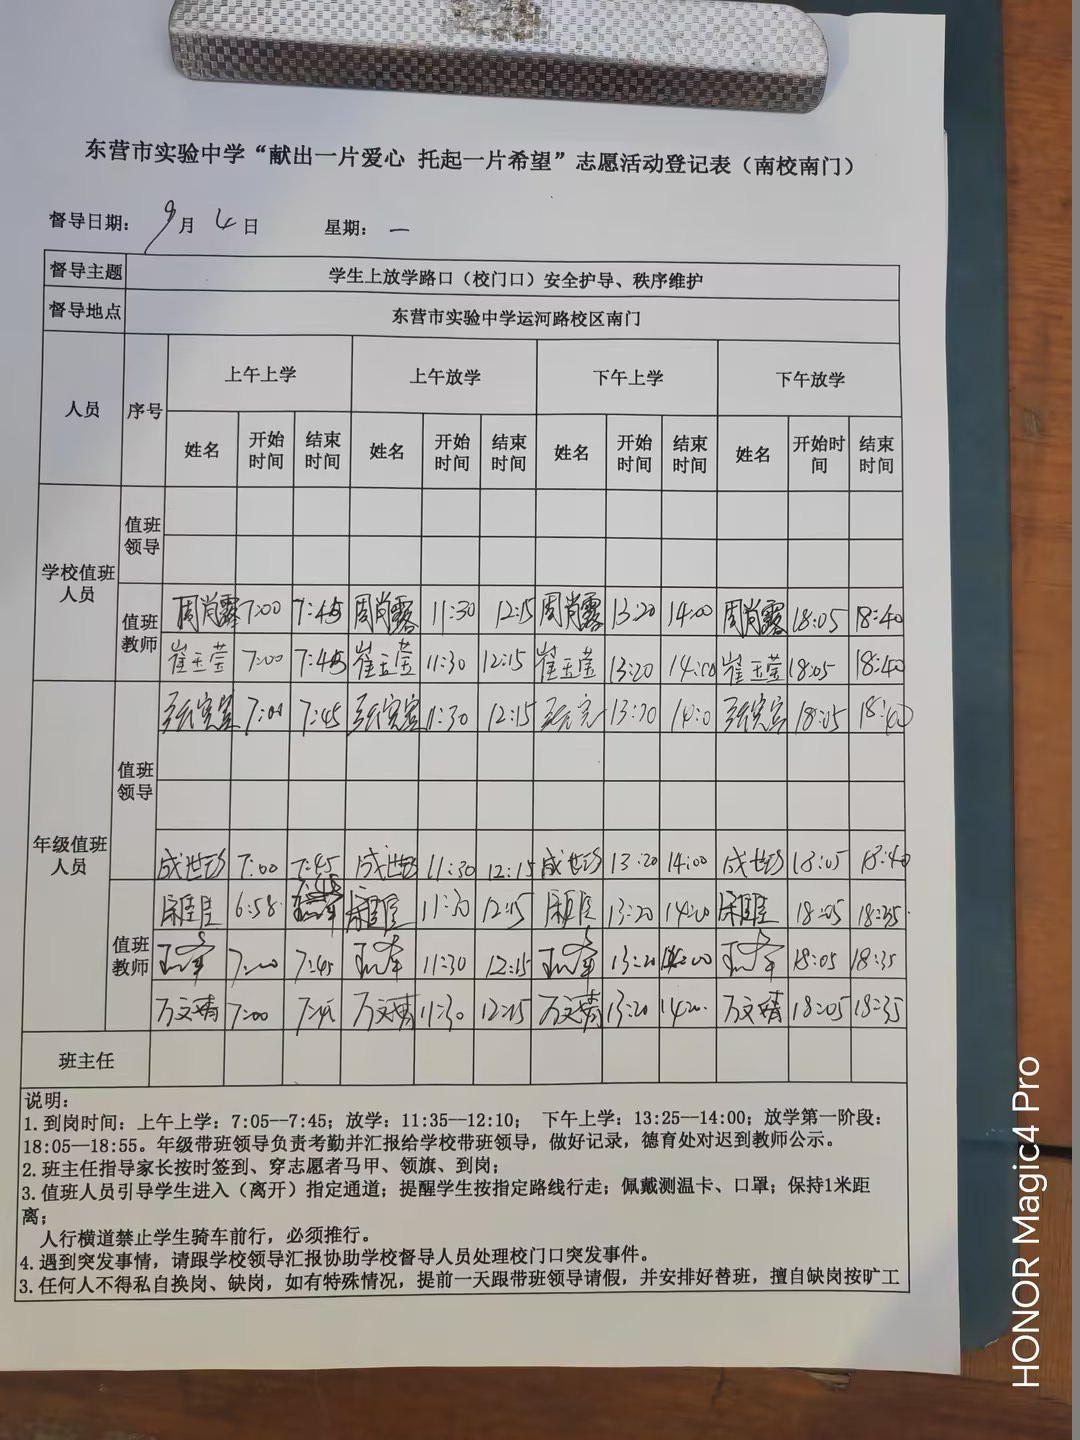 东营市实验中学“献出一片爱心 托起一片希望”志愿活动登记表（南校南门）
督导日期： 9月 4日 星期： 一
督导主题 学生上放学路口（校门口）安全护导、秩序维护
督导地点 东营市实验中学运河路校区南门
人员 序号 上午上学 上午放学 下午上学 下午放学
姓名 开始时间 结束时间 姓名 开始时间 结束时间 姓名 开始时间 结束时间 姓名 开始时间 结束时间
学校值班人员
值班领导
值班教师
周肖露 7:00 7:45 周肖露 11:30 12:15 周肖露 13:20 14:00 周肖露 18:05 18:40
崔玉莹 7:00 7:45 崔玉莹 11:30 12:15 崔玉莹 13:20 14:00 崔玉莹 18:05 18:40
年级值班人员
值班领导
7:00 7:45 11:30 12:15 13:20 14:0 18:05 18:40
成世珍 7:00 7:45 成世珍 11:30 12:15 成世珍 13:20 14:00 成世珍 18:05 18:40
值班教师
6:58 11:30 12:15 13:20 14:20 18:05 18:35
7:00 7:45 11:30 12:15 13:20 18:05 18:35
万文婧 7:00 7:45 万文婧 11:30 12:15 万文婧 13:20 14:20 万文婧 18:05 18:35
班主任
说明：
1.到岗时间：上午上学：7:05--7:45；放学：11:35--12:10； 下午上学：13:25--14:00；放学第一阶段：
18:05--18:55。年级带班领导负责考勤并汇报给学校带班领导，做好记录，德育处对迟到教师公示。
2.班主任指导家长按时签到、穿志愿者马甲、领旗、到岗；
3.值班人员引导学生进入（离开）指定通道；提醒学生按指定路线行走；佩戴测温卡、口罩；保持1米距
离；
人行横道禁止学生骑车前行，必须推行。
4.遇到突发事情，请跟学校领导汇报协助学校督导人员处理校门口突发事件。
3.任何人不得私自换岗、缺岗，如有特殊情况，提前一天跟带班领导请假，并安排好替班，擅自缺岗按旷工
HONOR Magic4 Pro